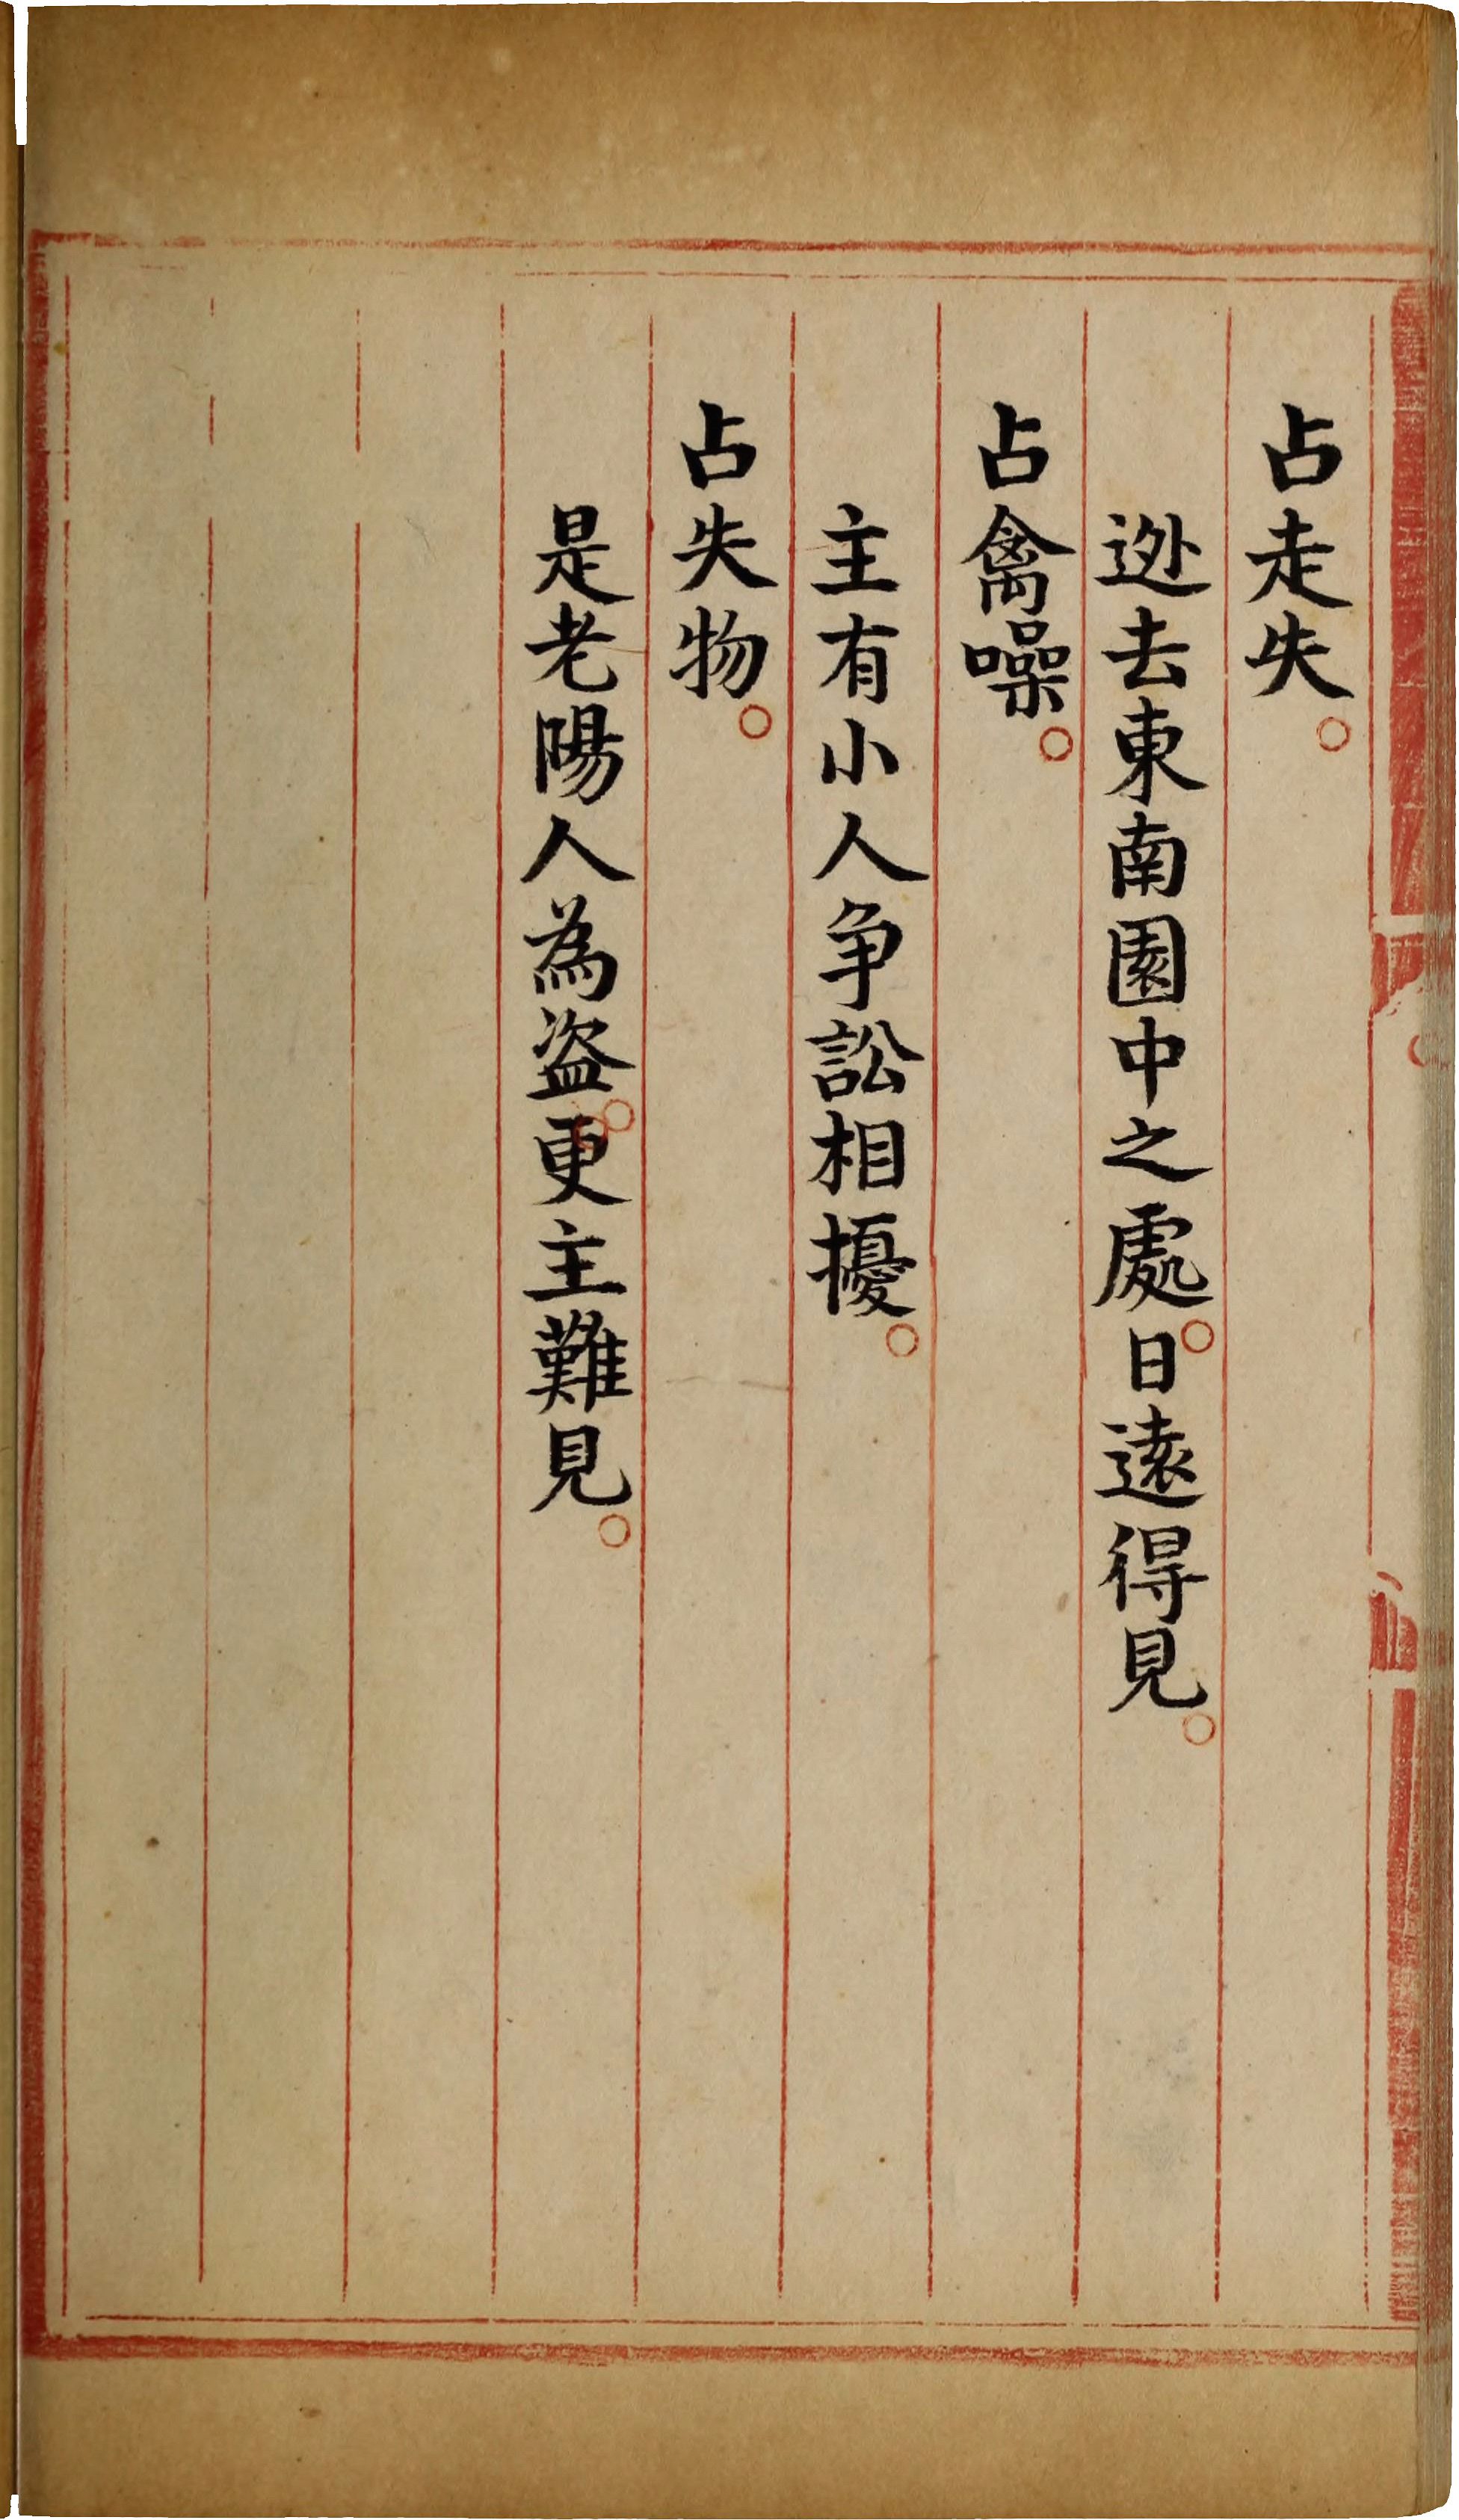 占走失。
逊去東南園中之處。日遠得見。
占禽噪。
主有小人争訟相擾。
占失物。
是老陽人為盗。更主難見。